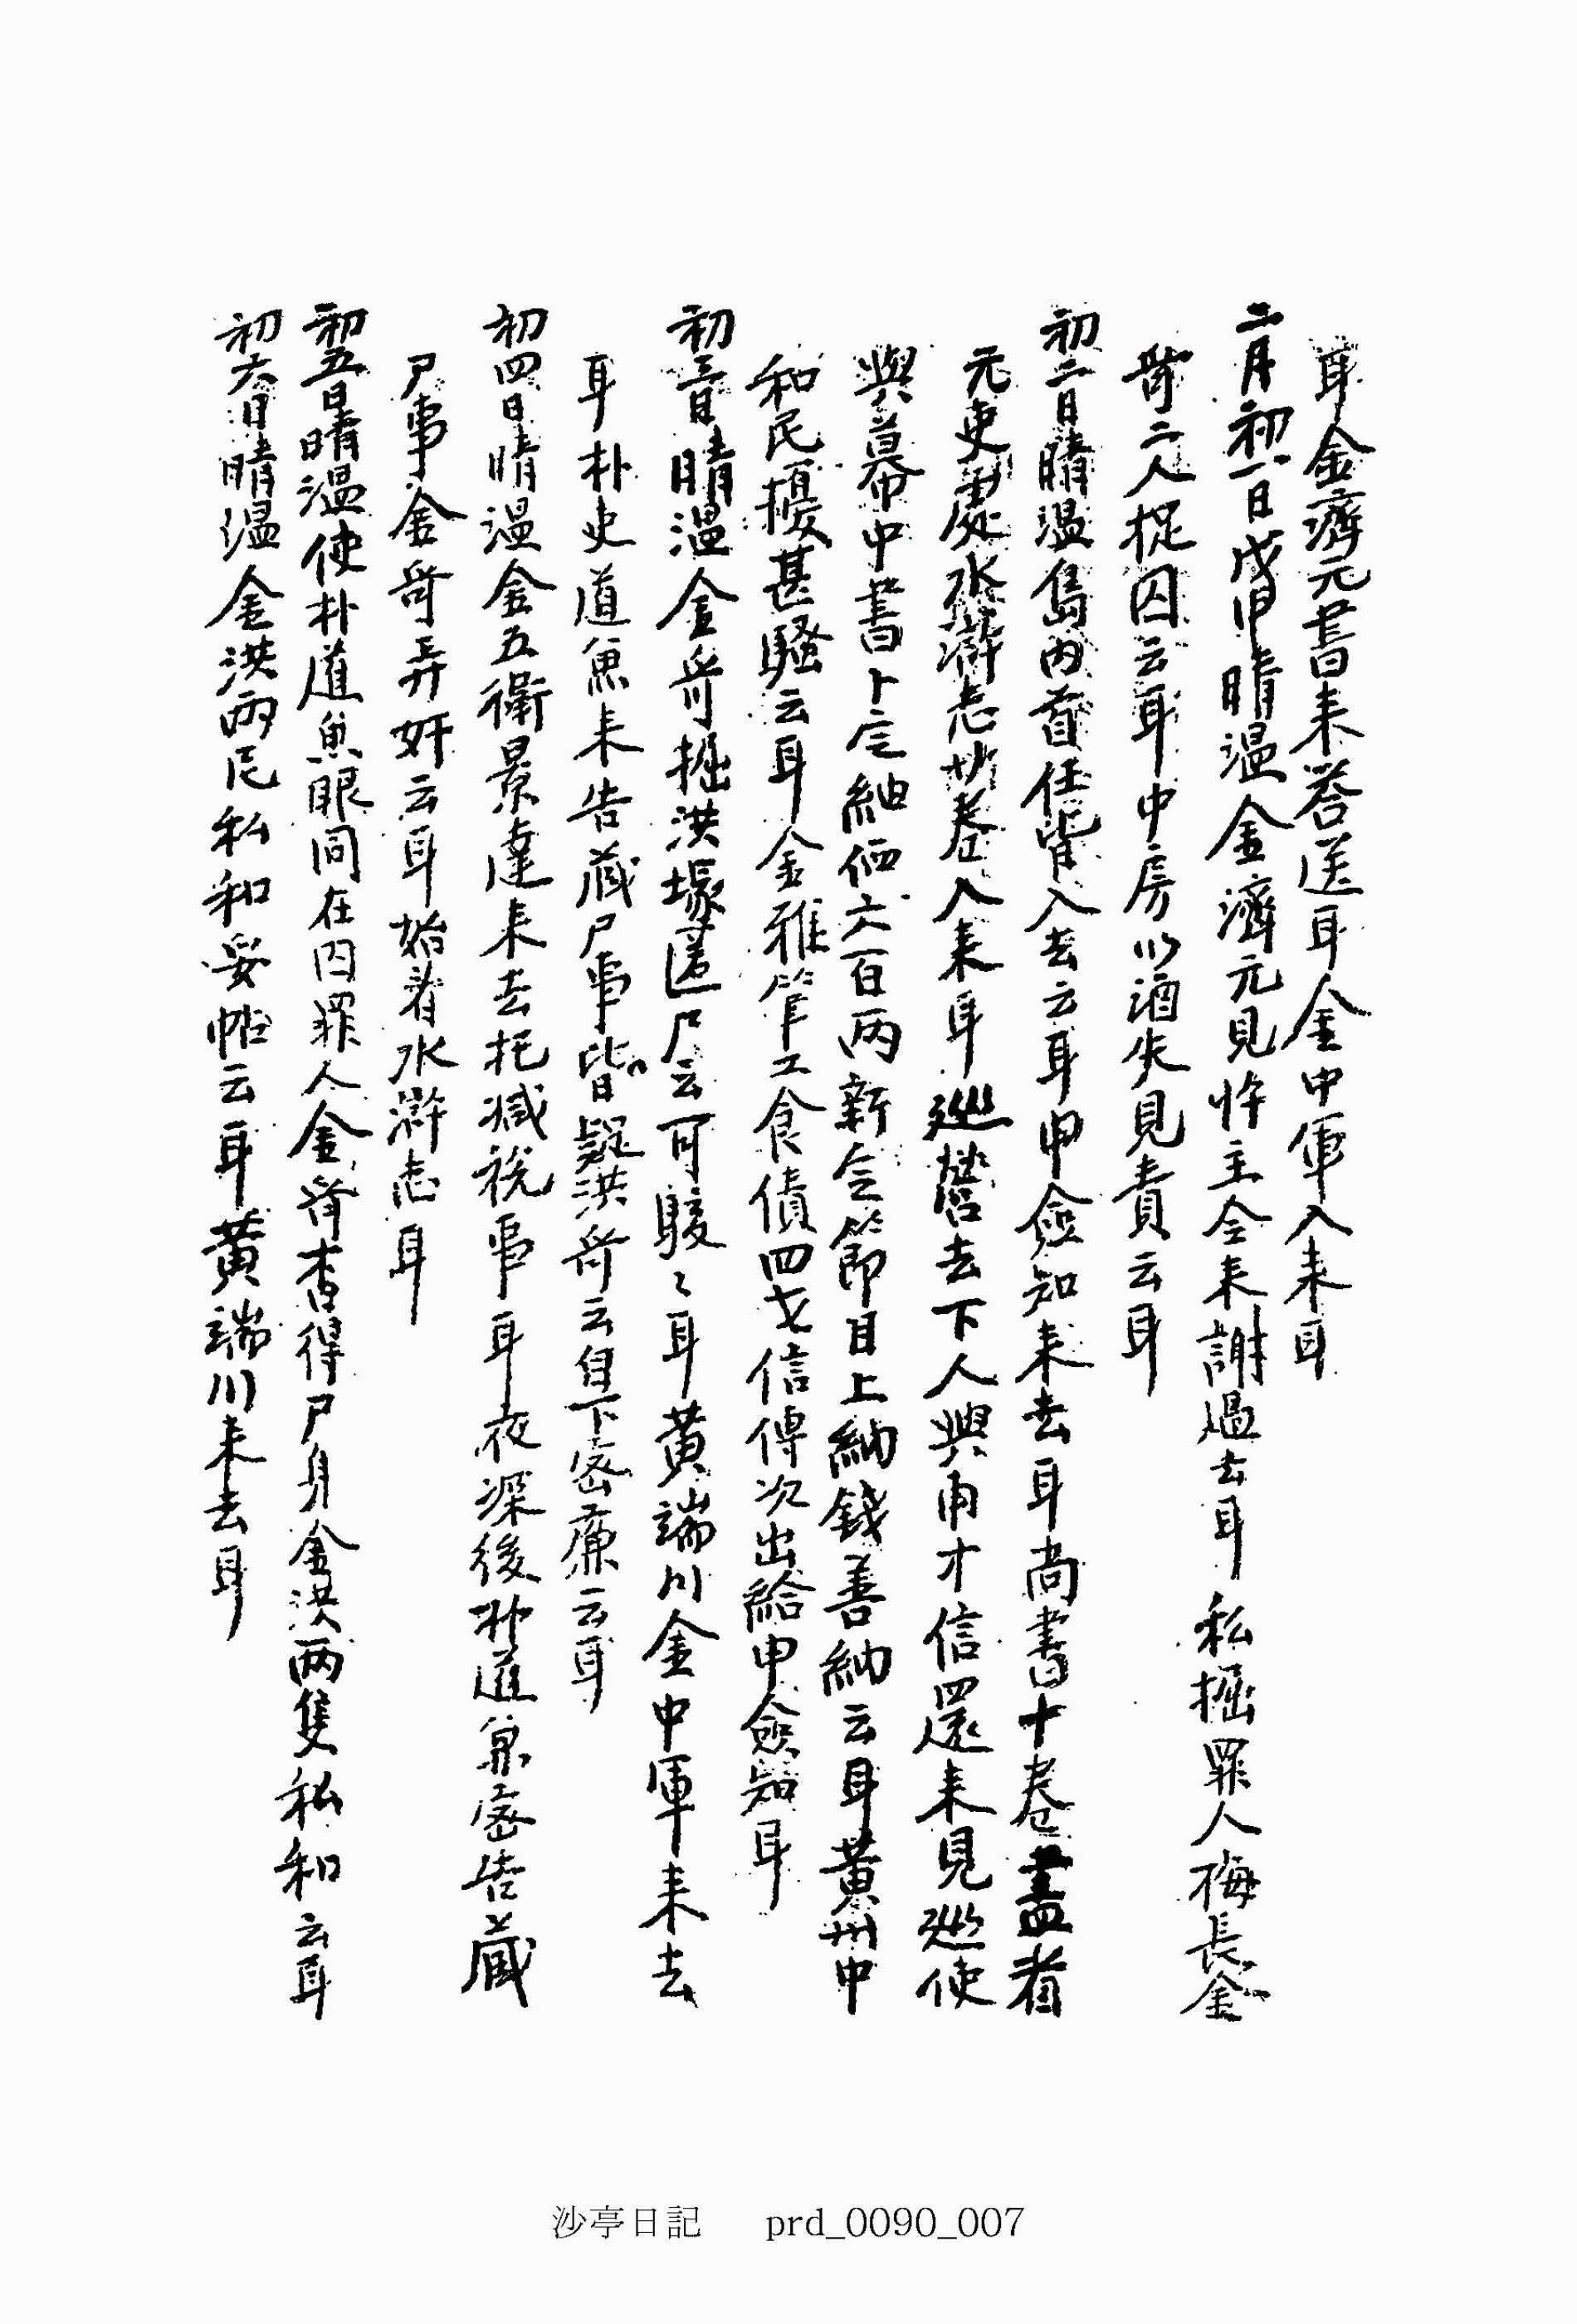 耳金濟元書來答送耳金中軍入來耳
二月初一日戊申晴温金濟元見忤主全來謝過去耳私掘罪人梅長金
哥二人捉囚云耳中房以酒失見責云耳
初二日晴温島內首任皆入去云耳申僉知來去耳尚書十卷盡看
元吏處水滸志卄卷入來耳巡營去下人興用才信還來見巡使
與幕中書卜定紬価六百両新令節目上納錢善納云耳黄州中
和民擾甚騷云耳金雅筆工食債四戈信傳次出給申僉知耳
初三日晴温金哥掘洪塚匿尸云可駭〻耳黄端川金中軍來去
耳朴史道魚來告藏尸事皆疑洪哥云自下密廉云耳
初四日晴温金五衛景達來去托减稅事耳夜深後朴道魚密告藏
尸事金哥弄奸云耳始看水滸志耳
初五日晴温使朴道魚眼同在囚罪人金哥査得尸身金洪両隻私和云耳
初六日晴温金洪両民私和妥帖云耳黄端川來去耳
沙亭日記 prd_0090_007